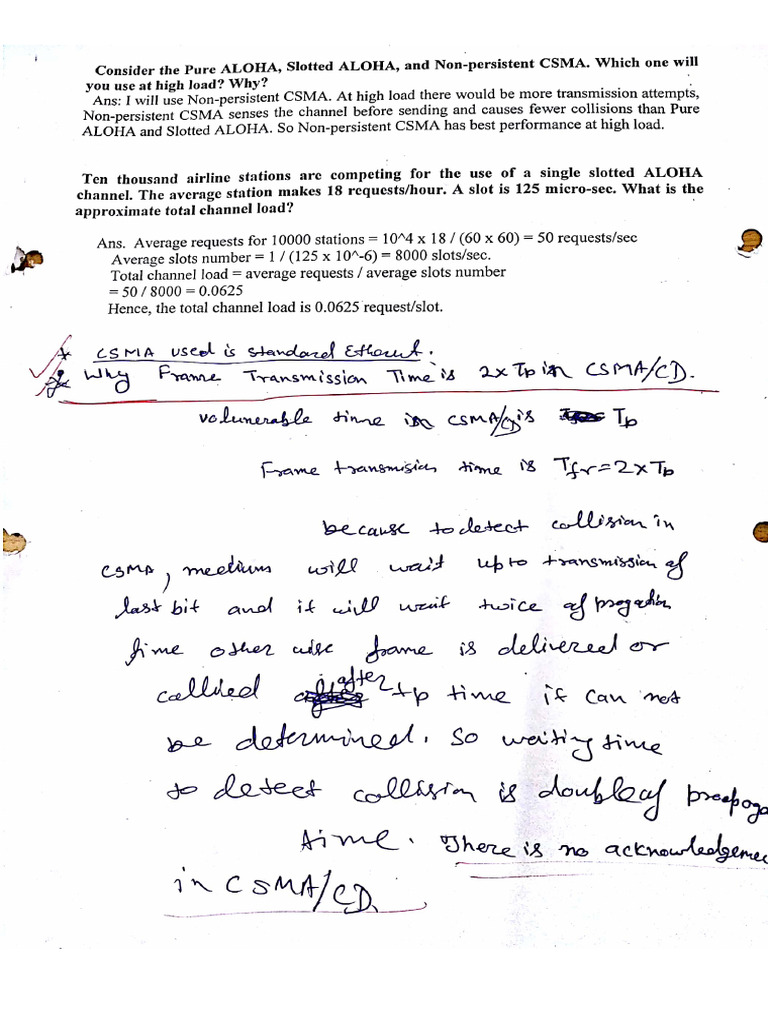 Consider the Pure ALOHA, Slotted ALOHA, and Non-persistent CSMA. Which one will
you use at high load? Why?
Ans: I will use Non-persistent CSMA. At high load there would be more transmission attempts,
Non-persistent CSMA senses the channel before sending and causes fewer collisions than Pure
ALOHA and Slotted ALOHA. So Non-persistent CSMA has best performance at high load.
Ten thousand airline stations are competing for the use of a single slotted ALOHA
channel. The average station makes 18 requests/hour. A slot is 125 micro-sec. What is the
approximate total channel load?
Ans. Average requests for 10000 stations = 10^4 x 18 / (60 x 60) = 50 requests/sec
Average slots number = 1 / (125 x 10^-6) = 8000 slots/sec.
Total channel load = average requests / average slots number
= 50 / 8000 = 0.0625
Hence, the total channel load is 0.0625 request/slot.
CSMA used is standard
Why Frame Transmission Time is 2xTp in CSMA/CD.
volunerable time in CSMA/CD is Tp
Frame transmision time is Tfr = 2 x Tp
because to detect collision in
CSMA, medium will wait upto transmission of
last bit and it will wait twice of
time other wise frame is delivered or
collied after tp time it can not
be determined. So waiting time
to detect collision is double of propoga
time. There is no acknowledgemen
in CSMA/CD.